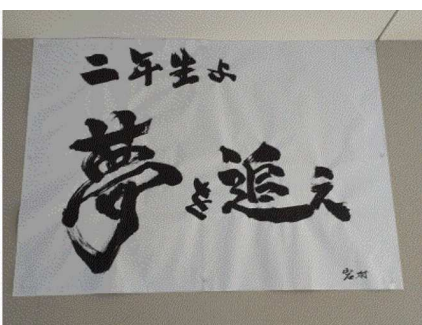 二年生よ
夢を追え
岩村